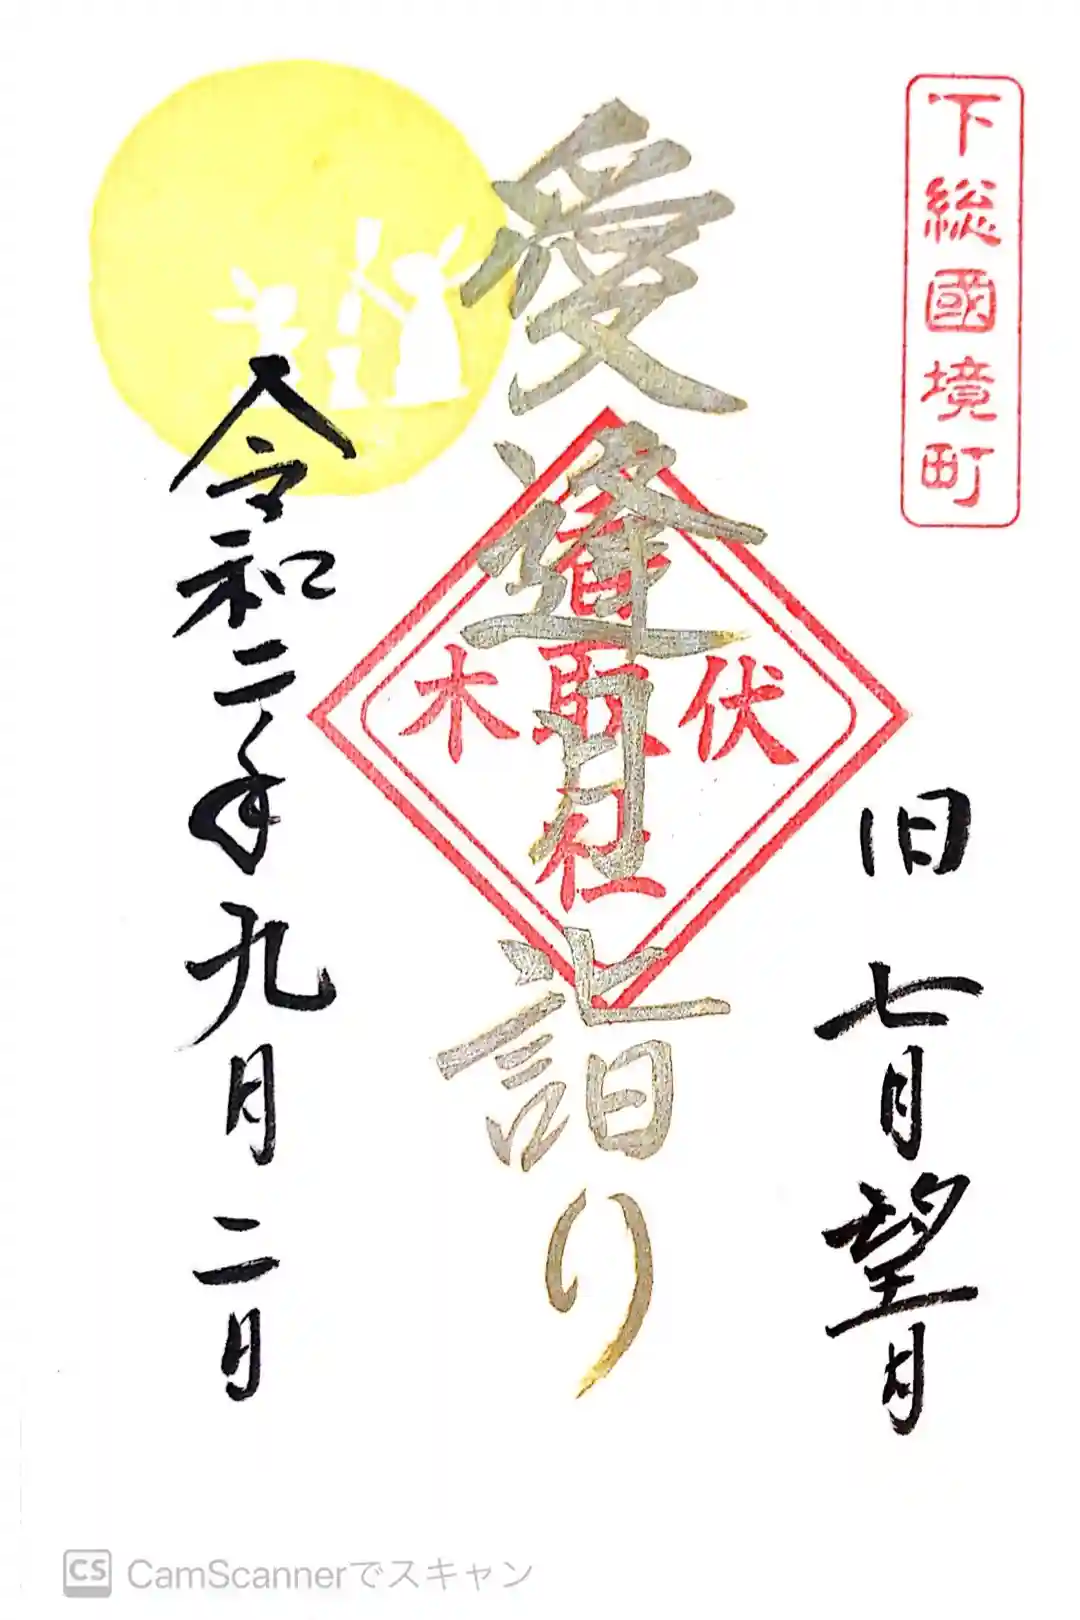 下総國境町
旧七月望月
愛逢月詣り
伏木
香取社
令和二年九月二日
CS CamScannerでスキャン